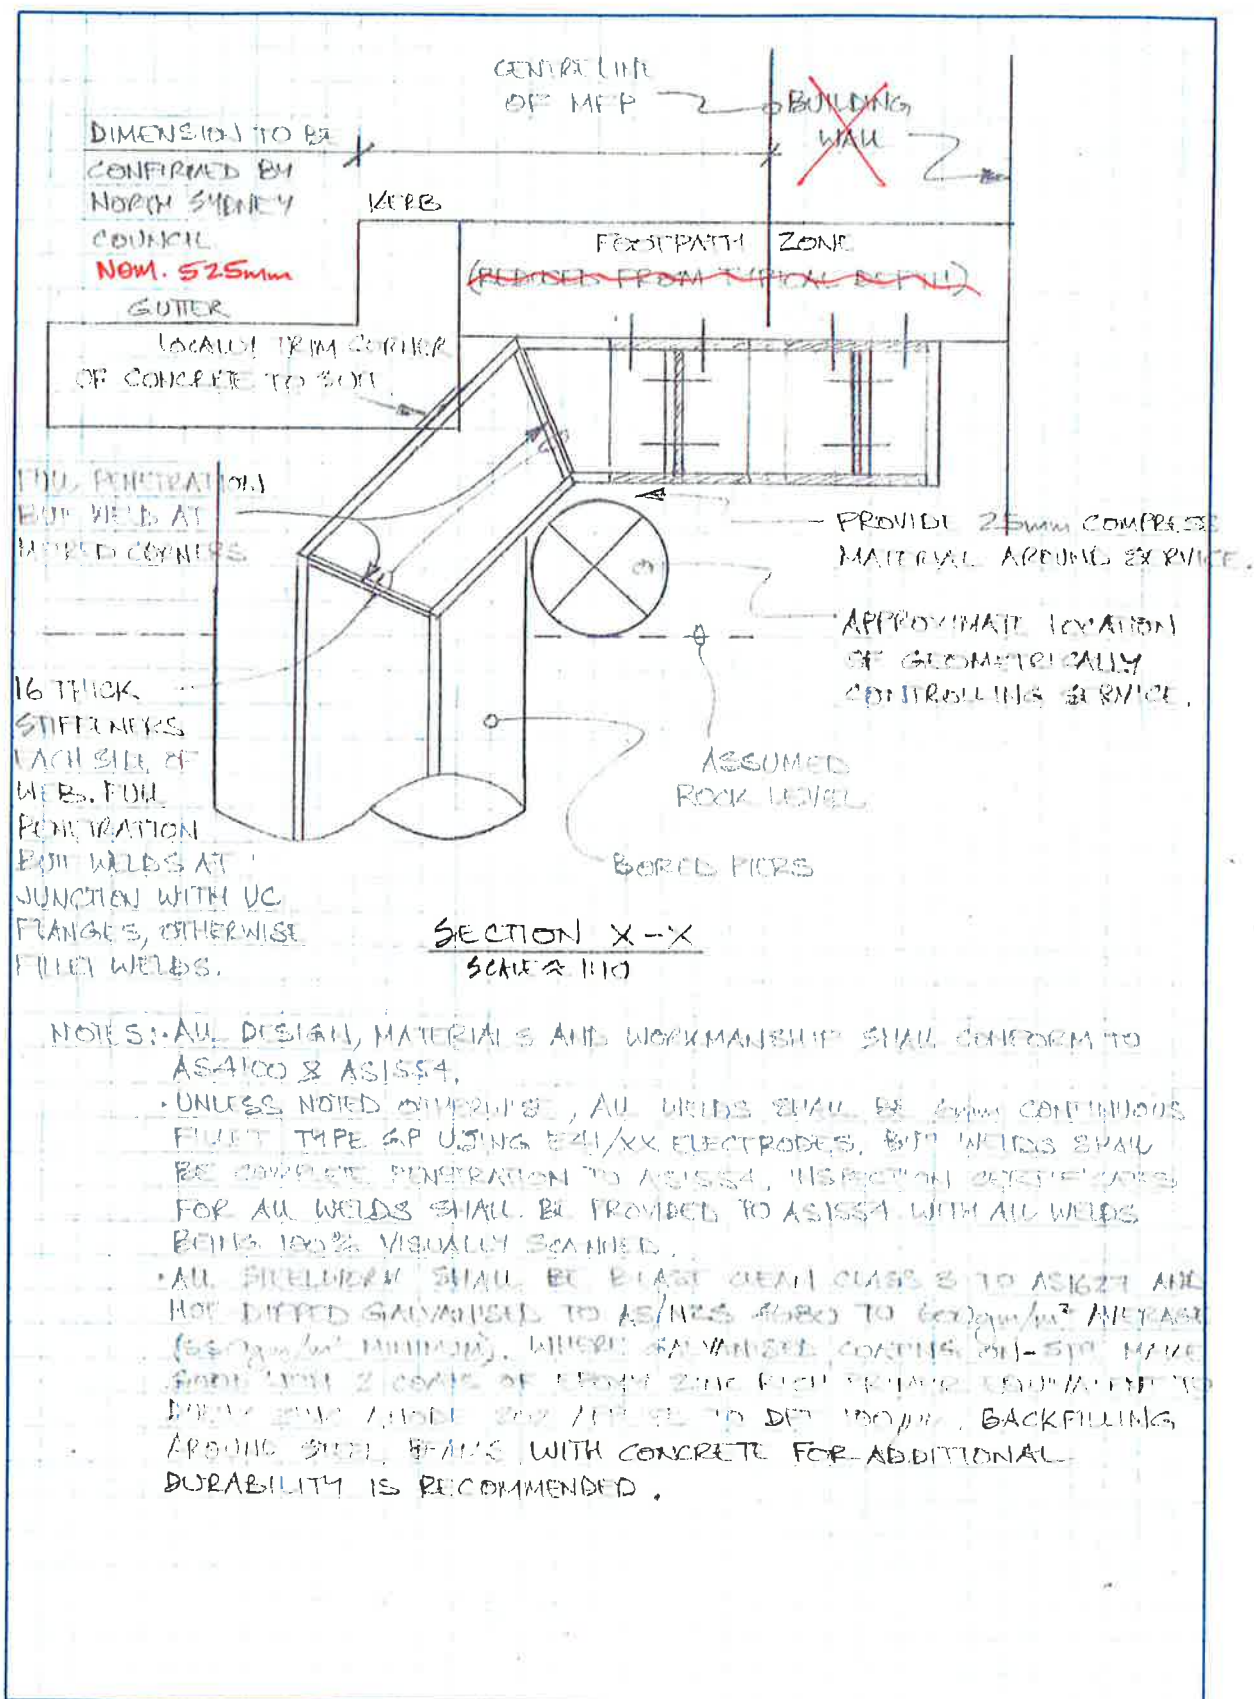 CENTRELINE
OF MFP
BUILDING
WALL
DIMENSION TO BE
CONFIRMED BY
NORTH SYDNEY
COUNCIL
NOM. 525mm
KERB
FOOTPATH ZONE
(REDUCED FROM TYPICAL DEPTH)
GUTTER
LOCALLY TRIM CORNER
OF CONCRETE TO SUIT
FULL PENETRATION
BUTT WELD AT
MITRED CORNERS
PROVIDE 25mm COMPRESS
MATERIAL AROUND SERVICE.
APPROXIMATE LOCATION
OF GEOMETRICALLY
CONTROLLING SERVICE.
16 THICK
STIFFENERS
EACH SIDE OF
WEB. FULL
PENETRATION
BUTT WELDS AT
JUNCTION WITH UC
FLANGES, OTHERWISE
FILLET WELDS.
ASSUMED
ROCK LEVEL
BORED PIERS
SECTION X-X
SCALE ≈ 1:10
NOTES: · ALL DESIGN, MATERIALS AND WORKMANSHIP SHALL CONFORM TO
AS4100 & AS1554.
· UNLESS NOTED OTHERWISE, ALL WELDS SHALL BE CONTINUOUS
FILLET TYPE GP USING E41/XX ELECTRODES. BUTT WELDS SHALL
BE COMPLETE PENETRATION TO AS1554. INSPECTION CERTIFICATES
FOR ALL WELDS SHALL BE PROVIDED TO AS1554 WITH ALL WELDS
BEING 100% VISUALLY SCANNED.
· ALL STEELWORK SHALL BE BLAST CLEAN CLASS 3 TO AS1627 AND
HOT DIPPED GALVANISED TO AS/NZS 4680 TO 600gm/m² AVERAGE
(550gm/m² MINIMUM). WHERE GALVANISED COATING ON-SITE MAKE
GOOD WITH 2 COATS OF EPOXY ZINC RICH PRIMER EQUIVALENT TO
ZINC TO DFT 100µm. BACKFILLING
AROUND STEEL BEAMS WITH CONCRETE FOR ADDITIONAL
DURABILITY IS RECOMMENDED.